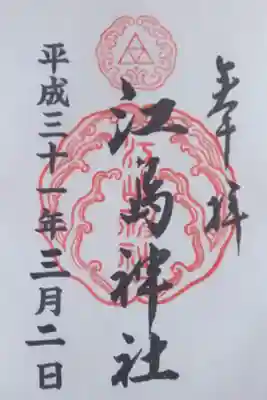 奉拝
江島神社
平成三十一年三月二日